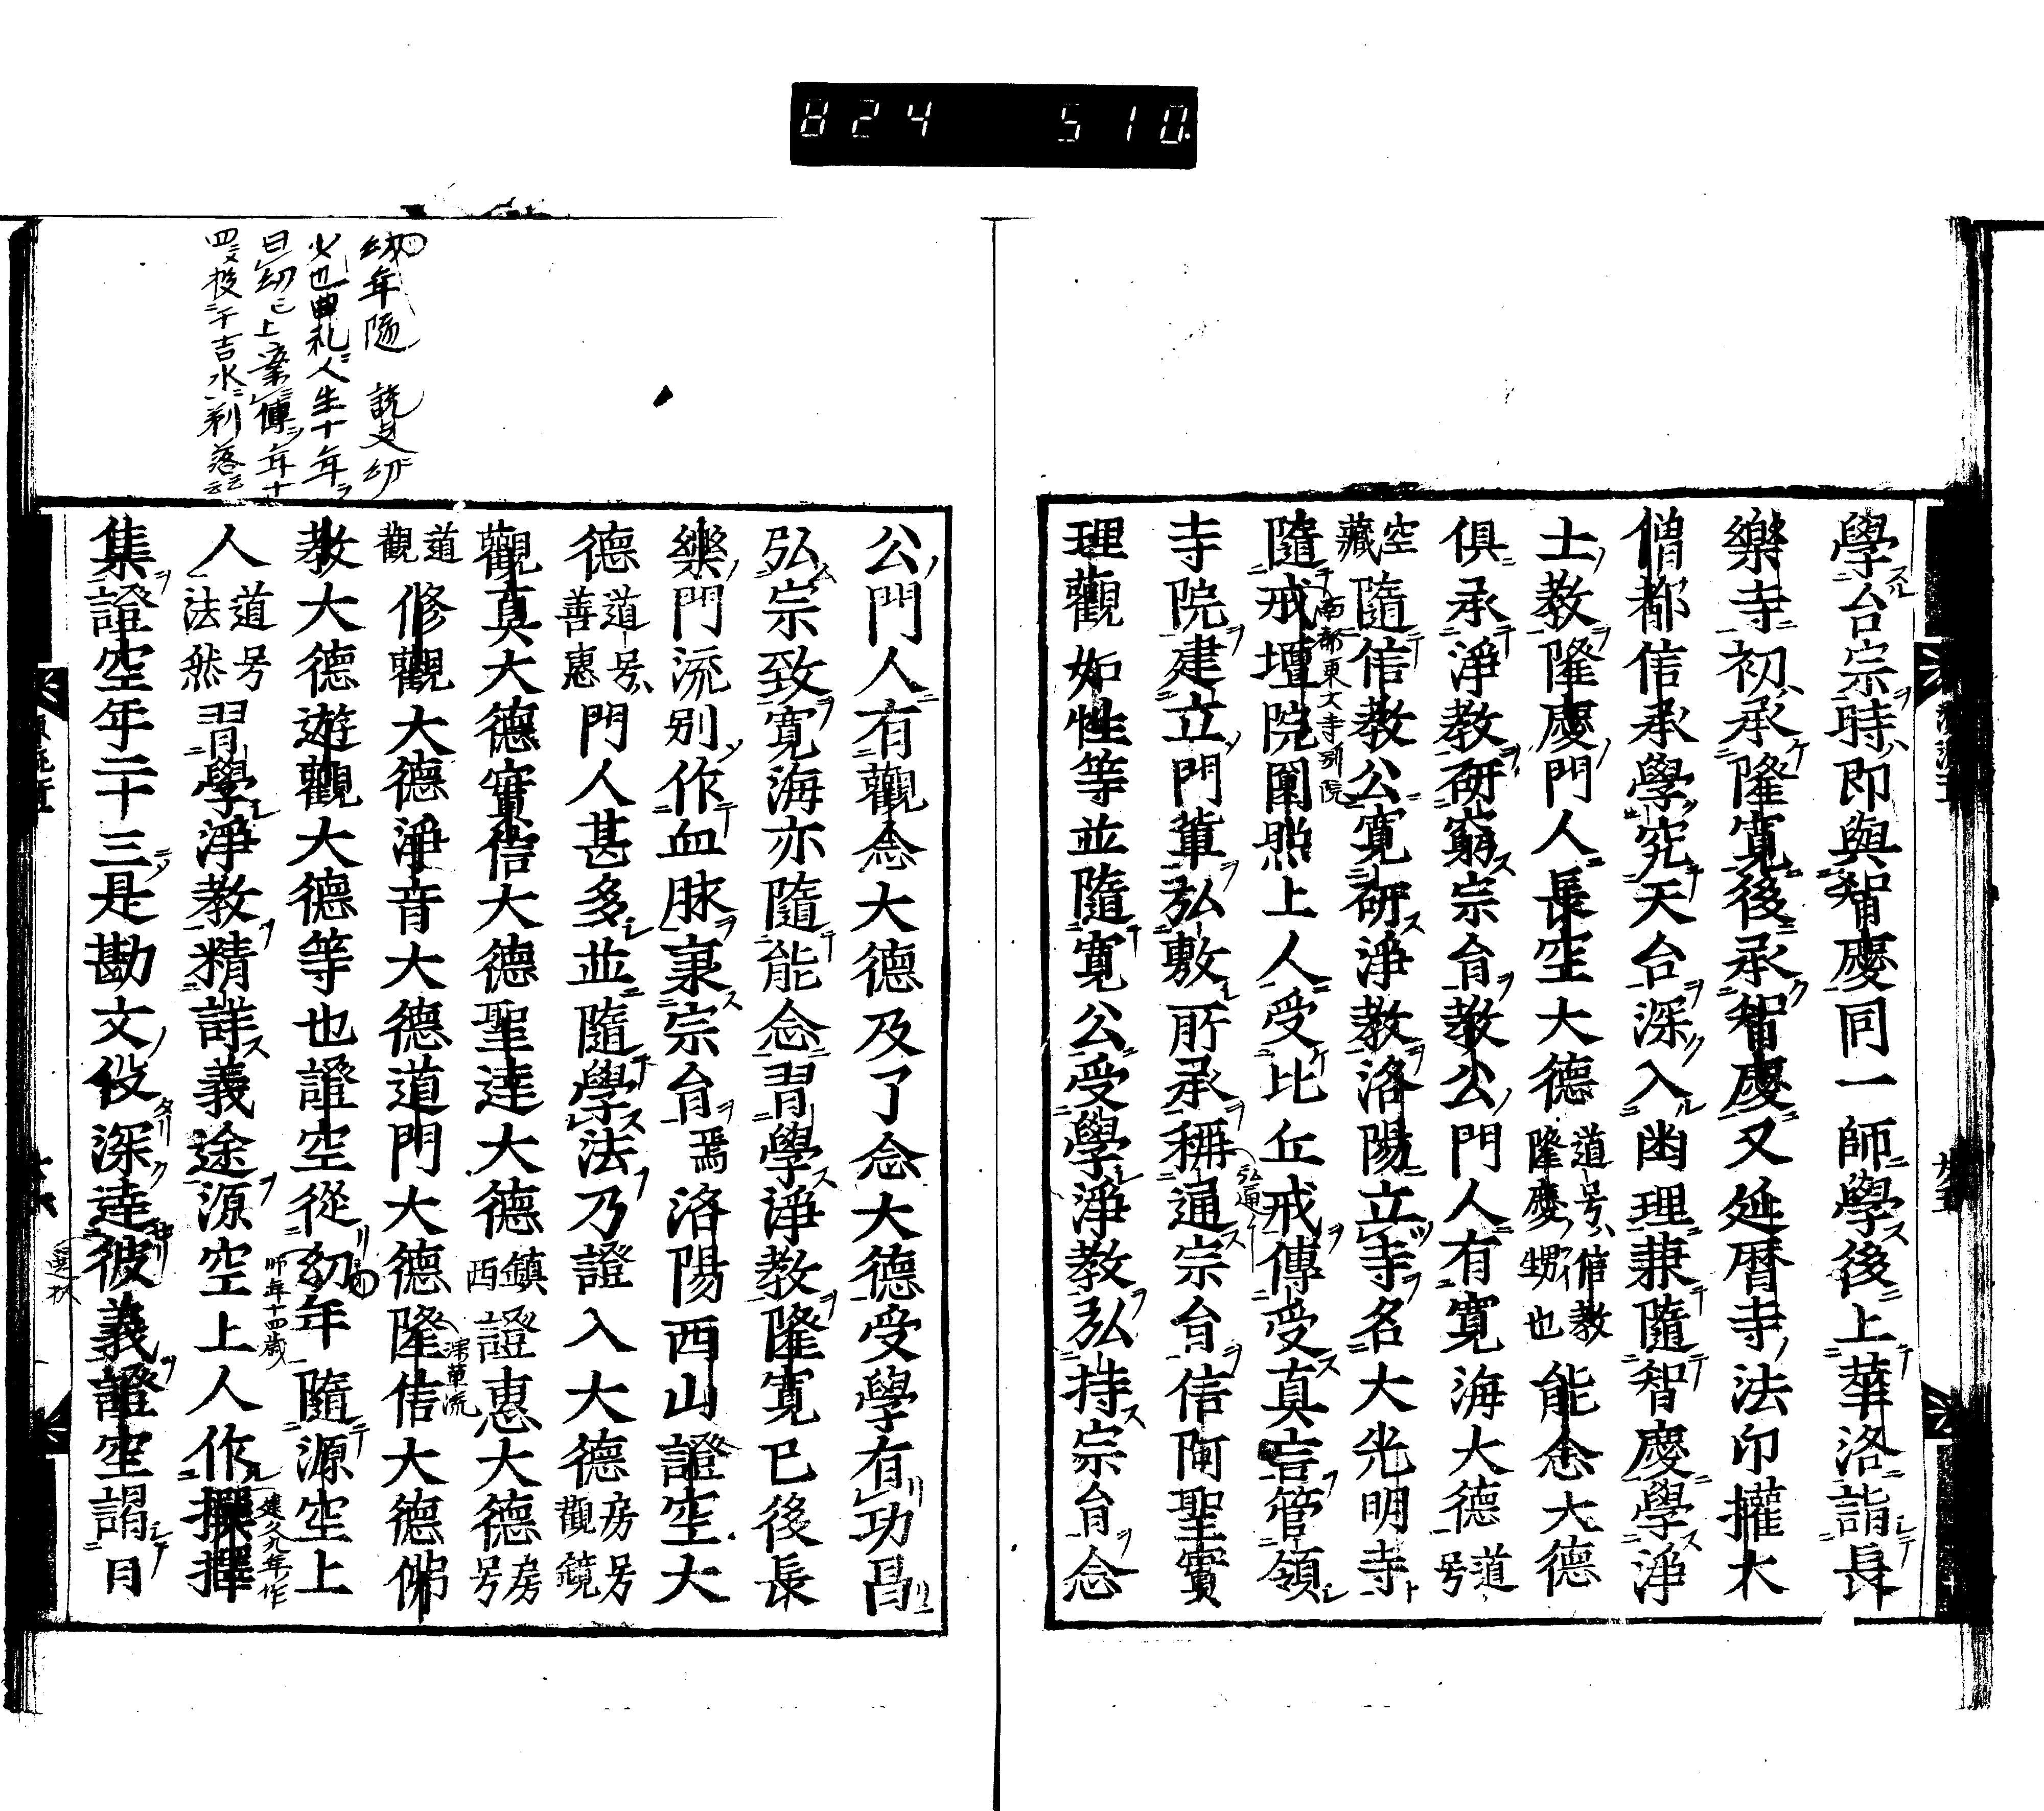 824 510
學台宗時即與智慶同一師學後上華洛詣長
樂寺初承隆寬後承智慶又延曆寺法印權大
僧都信承學究天台深入幽理兼隨智慶學淨
土教隆慶門人長空大德道号信教隆慶甥也能念大德
俱承淨教研窮宗旨教公門人有寬海大德道号
空藏隨信教公寬研淨教洛陽立寺名大光明寺
隨戒壇院圓照上人受比丘戒傳受真言管領
南都東大寺別院
寺院建立門葉弘敷所承稱通宗旨信阿聖實
弘通
理觀如性等並隨寬公受學淨教弘持宗旨念
公門人有觀念大德及了念大德受學有功昌
弘宗致寬海亦隨能念習學淨教隆寬已後長
樂門流別作血脉稟宗旨焉洛陽西山證空大
德道号善惠門人甚多並隨學法乃證入大德房号觀鏡
觀真大德實信大德聖達大德鎮西證惠大德房号
道觀修觀大德淨音大德道門大德隆信大德佛
深草流
教大德遊觀大德等也證空從幼年隨源空上
師年十四歲
人道号法然習學淨教精詳義途源空上人作撰擇
建久九年作
集證空年二十三是勘文役深達彼義證空謂曰
選択
幼年隨 說文幼
少也曲礼人生十年
曰幼已上業傳年十
四投于吉水剃落云云